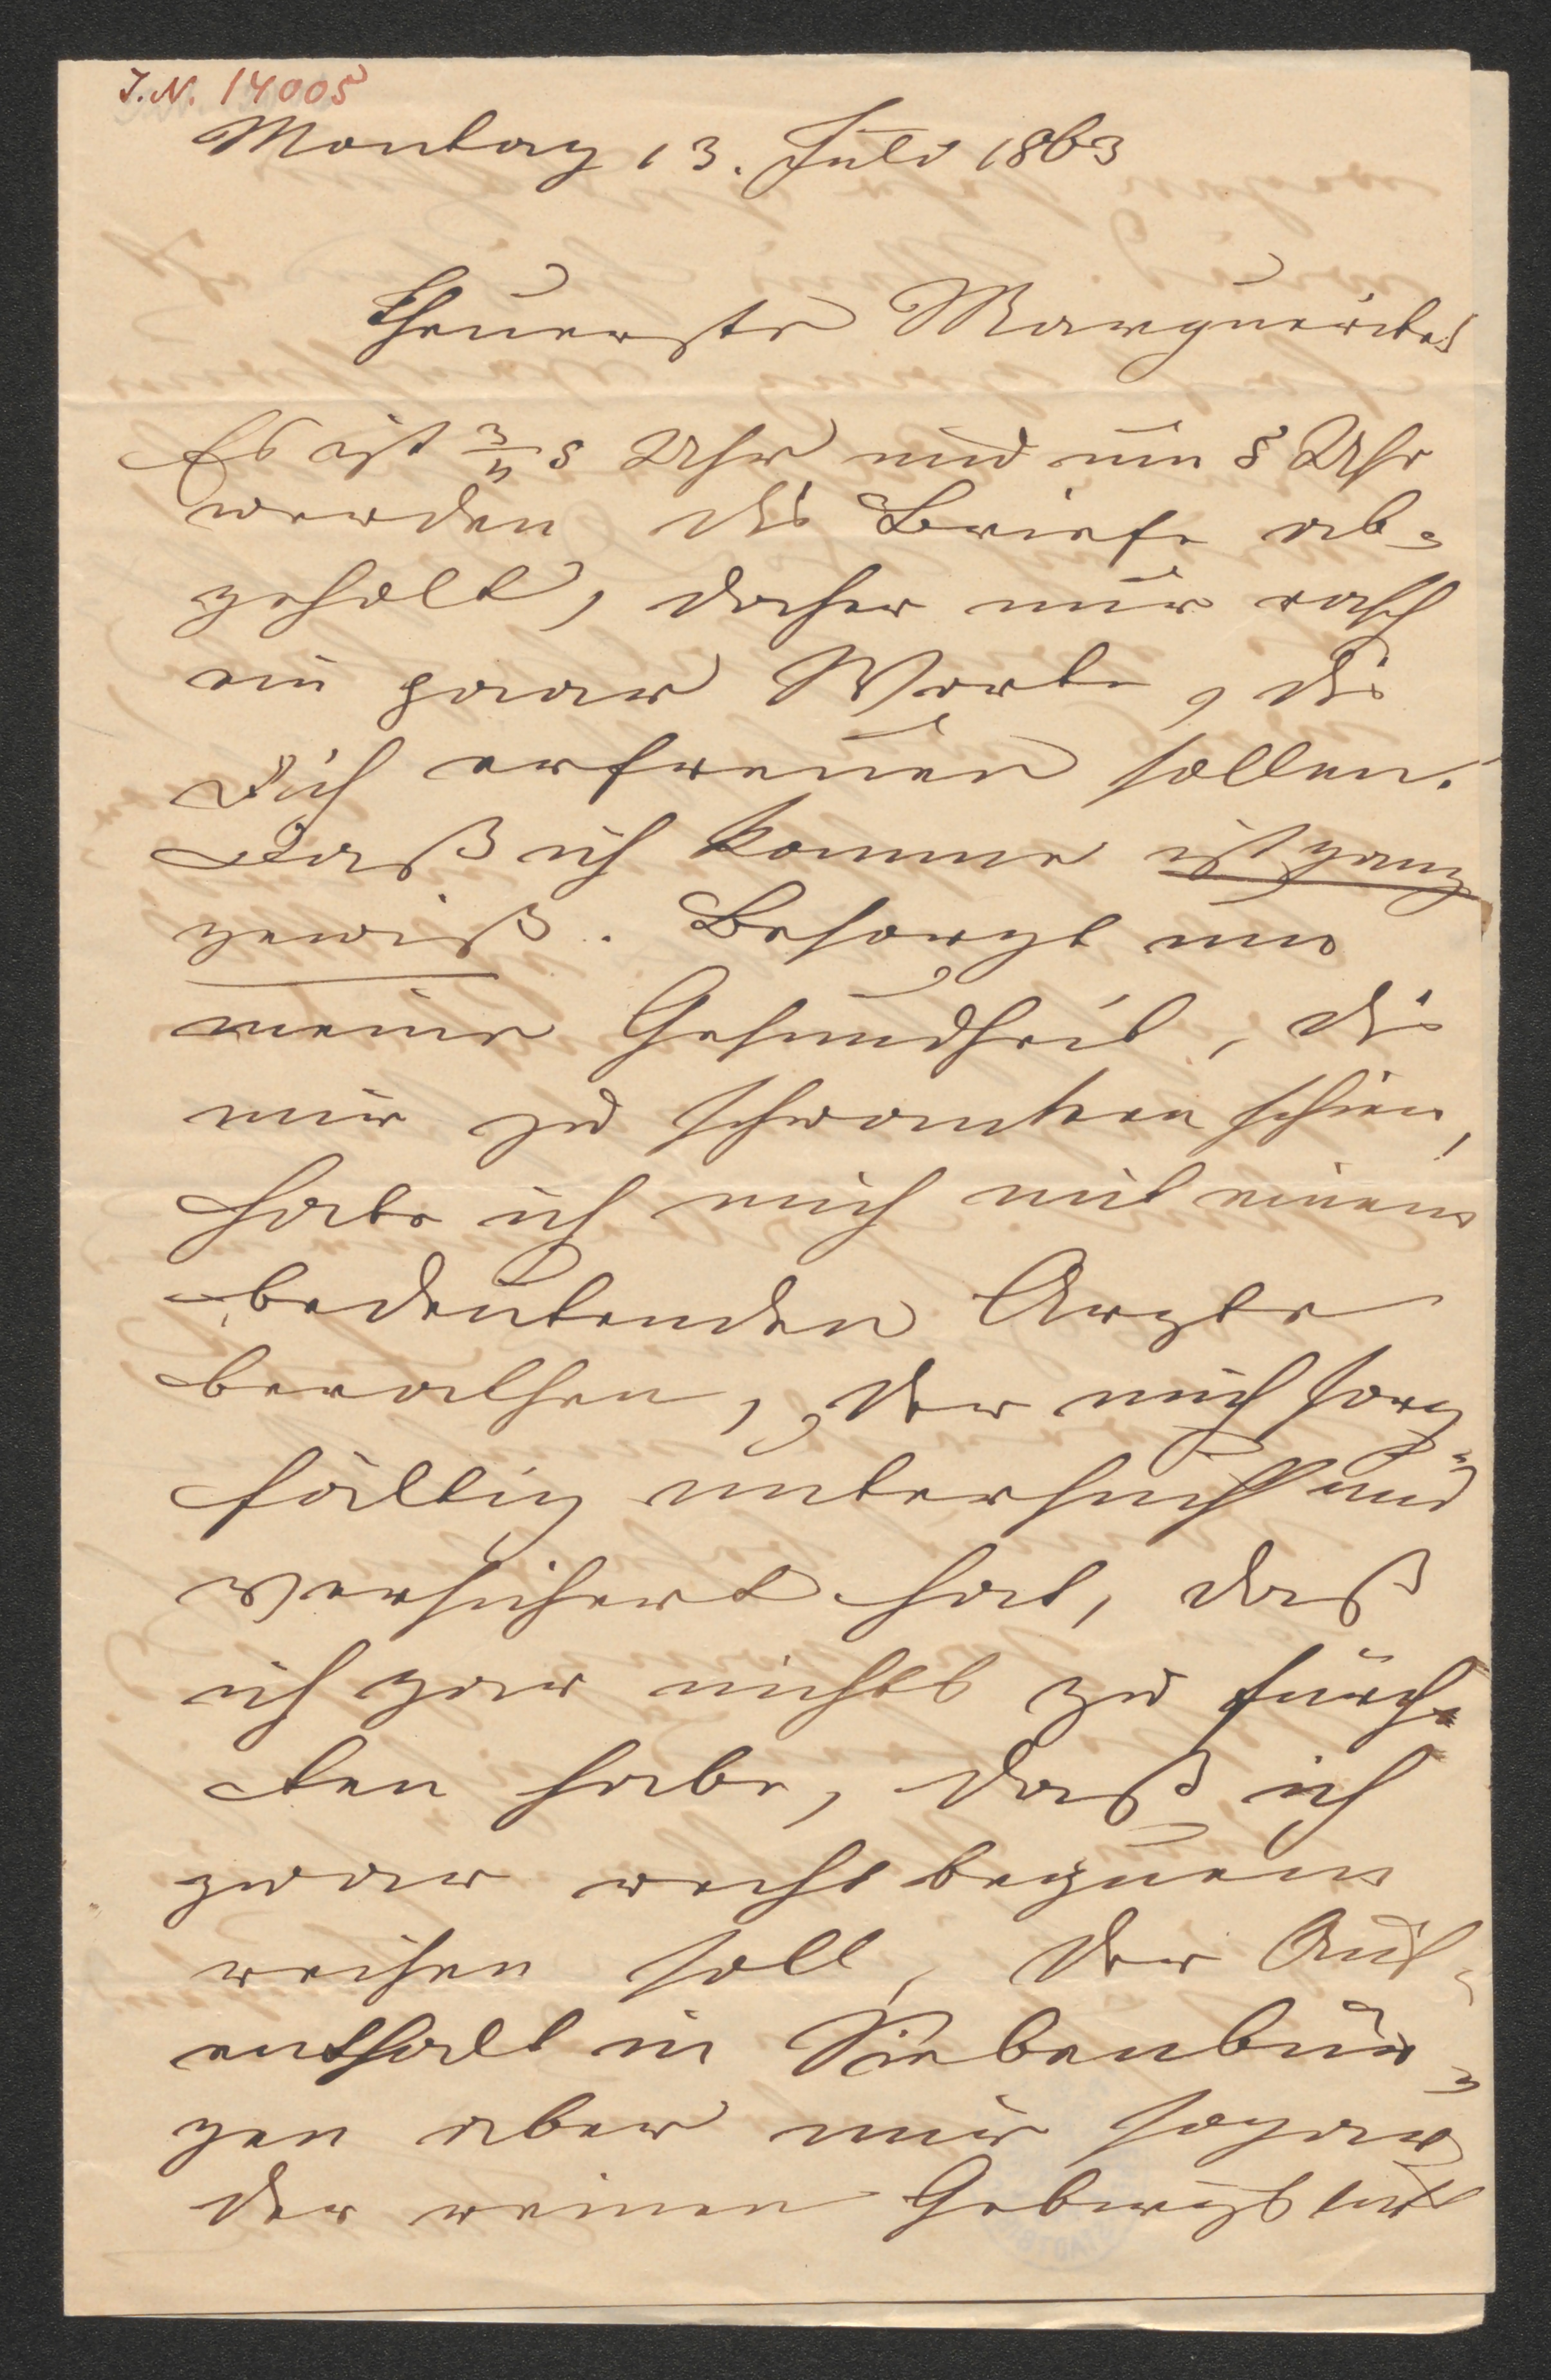 J.N. 14005
Montag 13. Juli 1863
Theuerste Marguerite!
Es ist 3/4 8 Uhr und um 8 Uhr
werden die Briefe ab-
geholt, daher nur rasch
ein paar Worte, die
Dich erfreuen sollen.
Daß ich komme ist ganz
gewiß. Besorgt um
meine Gesundheit, die
mir zu schwanken schien,
habe ich mich mit einem
bedeutenden Arzte
berathen, der mich sorg-
fältig untersucht und
versichert hat, daß
ich gar nichts zu fürch-
ten habe, daß ich
zwar recht bequem
reisen soll, der Auf-
enthalt in Siebenbür-
gen aber mir sogar
der reinen Gebirgsluft